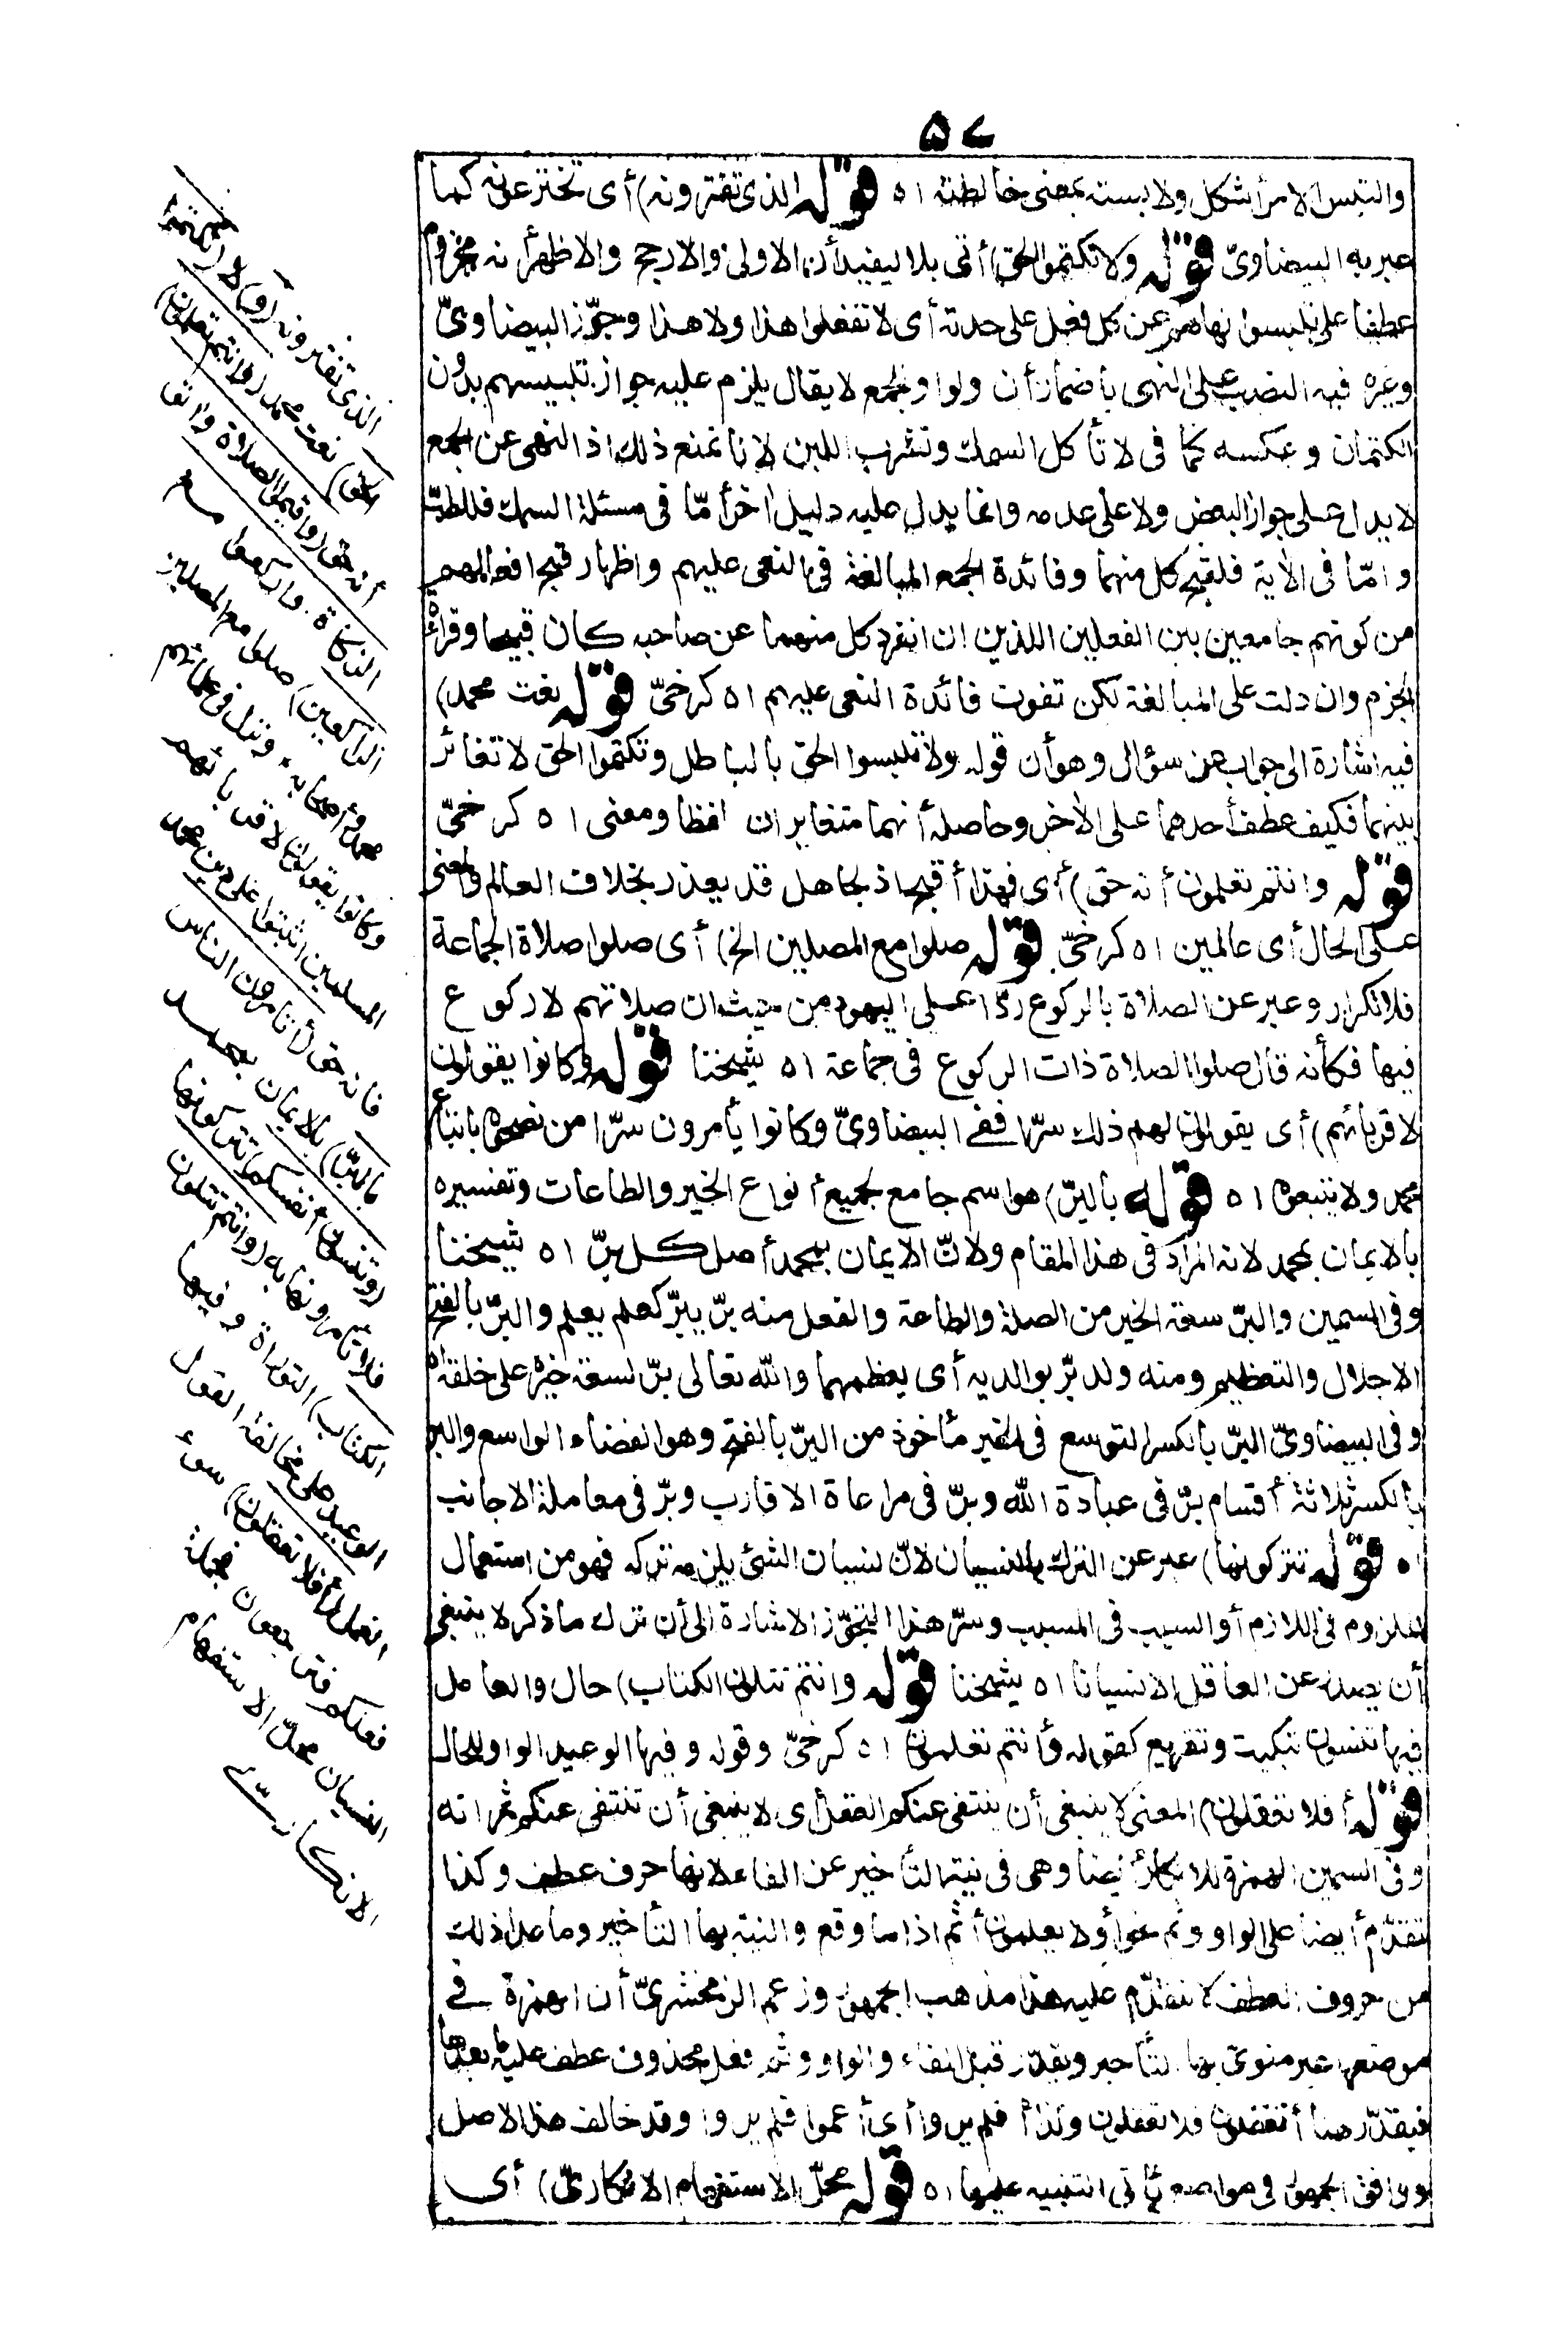 ٥٧
والتبس الامر أشكل ولابسته بمعنى خالطته ا ه قوله الذى تفترونه) أى تخترعونه كما
عبر به البيضاوىّ قوله ولا تكتموا الحق) أتى بلا ليفيد أن الاولى والارجح والاظهر أنه مجزوم
عطفا على تلبسوا نهاهم عن كل فعل على حدته أى لا تفعلوا هذا ولا هذا وجوّز البيضاوىّ
وغيره فيه النصب على النهى باضمار أن ولواو الجمع لا يقال يلزم عليه جواز تلبيسهم بدون
الكتمان وعكسه كما فى لا تأكل السمك وتشرب اللبن لانا نمنع ذلك اذ النهى عن الجمع
لا يدل على جواز البعض ولا على عدمه وانما يدل عليه دليل اخر أمّا فى مسئلة السمك فللطبّ
وامّا فى الأية فلقبح كل منهما وفائدة الجمع المبالغة فى النعى عليهم واظهار قبح افعالهم
من كونهم جامعين بين الفعلين اللذين ان انفرد كل منهما عن صاحبه كان قبيحا وقراءة
الجزم وان دلت على المبالغة لكن تفوت فائدة النعى عليهم ا ه كرخىّ قوله نعت محمد)
فيه اشارة الى جواب عن سؤال وهو أن قوله ولا تلبسوا الحق بالباطل وتكتموا الحق لا تغائر
بينهما فكيف عطف أحدهما على الأخر وحاصله أنهما متغايران لفظا ومعنى ا ه كرخىّ
قوله وانتم تعلمون أنه حق) أى فهذا أقبح اذ الجاهل قد يعذر بخلاف العالم والمعنى
على الحال أى عالمين ا ه كرخىّ قوله صلوا مع المصلين الخ) أى صلوا صلاة الجماعة
فلا تكرار وعبر عن الصلاة بالركوع ردّا على اليهود من حيث ان صلاتهم لا ركوع
فيها فكأنه قال صلوا الصلاة ذات الركوع فى جماعة ا ه شيخنا قوله وكانوا يقولون
لاقربائهم) أى يقولون لهم ذلك سرّا ففى البيضاوىّ وكانوا يأمرون سرّا من نصحوه باتباع
محمد ولا يتبعونه ا ه قوله بالبرّ) هو اسم جامع لجميع أنواع الخير والطاعات وتفسيره
بالايمان بمحمد لانه المراد فى هذا المقام ولانّ الايمان بمحمد أصل كل برّ ا ه شيخنا
وفى السمين والبرّ سعة الخير من الصلة والطاعة والفعل منه برّ يبرّ كعلم يعلم والبرّ بالفتح
الاجلال والتعظيم ومنه ولد برّ بوالديه أى يعظمهما والله تعالى برّ لسعة خيره على خلقه ا ه
وفى البيضاوىّ البرّ بالكسر التوسع فى الخير مأخوذ من البرّ بالفتح وهو الفضاء الواسع والبر
بالكسر ثلاثة أقسام برّ فى عبادة الله وبرّ فى مراعاة الاقارب وبرّ فى معاملة الاجانب
ا ه قوله تتركونها) عبر عن الترك بالنسيان لانّ نسيان الشئ يلزمه تركه فهو من استعمال
الملزوم فى اللازم أو السبب فى المسبب وسرّ هذا التجوّز الاشارة الى أن ترك ما ذكر لا ينبغى
أن يصدر عن العاقل الا نسيانا ا ه شيخنا قوله وانتم تتلون الكتاب) حال والعامل
فيها تنسون تبكيت وتقريع كقوله وأنتم تعلمون ا ه كرخىّ وقوله وفيها الوعيد الواو للحال
قوله أفلا تعقلون) المعنى لا ينبغى أن ينتفى عنكم العقل أى لا ينبغى أن تنتفى عنكم ثمراته
وفى السمين الهمزة للانكار أيضا وهى فى نية التأخير عن الفاء لانها حرف عطف وكذا
تتقدّم أيضا على الواو وثم نحو أولا يعلمون أثم اذا ما وقع والنية بها التأخير وما عدا ذلك
من حروف العطف لا تتقدّم عليه هذا مذهب الجمهور وزعم الزمخشرىّ أن الهمزة فى
موضعها غير منوىّ بها التأخير ويقدّر قبل الفاء والواو وثم فعل محذوف عطف عليه ما بعدها
فيقدّر هنا أتغفلون فلا تعقلون وكذا أفلم يروا أى أعموا فلم يروا وقد خالف هذا الاصل
ووافق الجمهور فى مواضع يأتى التنبيه عليها ا ه قوله محلّ الاستفهام الانكارىّ) أى
الذى تفترونه (و) لا (تكتموا
الحق) نعت محمد (وانتم تعلمون)
أنه حق (واقيموا الصلاة واتوا
الزكاة واركعوا مع
الراكعين) صلوا مع المصلين
محمد وأصحابه ونزل فى علمائهم
وكانوا يقولون لاقربائهم
المسلمين اثبتوا على دين محمد
فانه حق (أتأمرون الناس
بالبرّ) بالايمان بمحمد
(وتنسون أنفسكم) تتركونها
فلا تأمرونها به (وانتم تتلون
الكتاب) التوراة وفيها
الوعيد على مخالفة القول
العمل (أفلا تعقلون) سوء
فعلكم فترجعون فجملة
النسيان محلّ الاستفهام
الانكارىّ